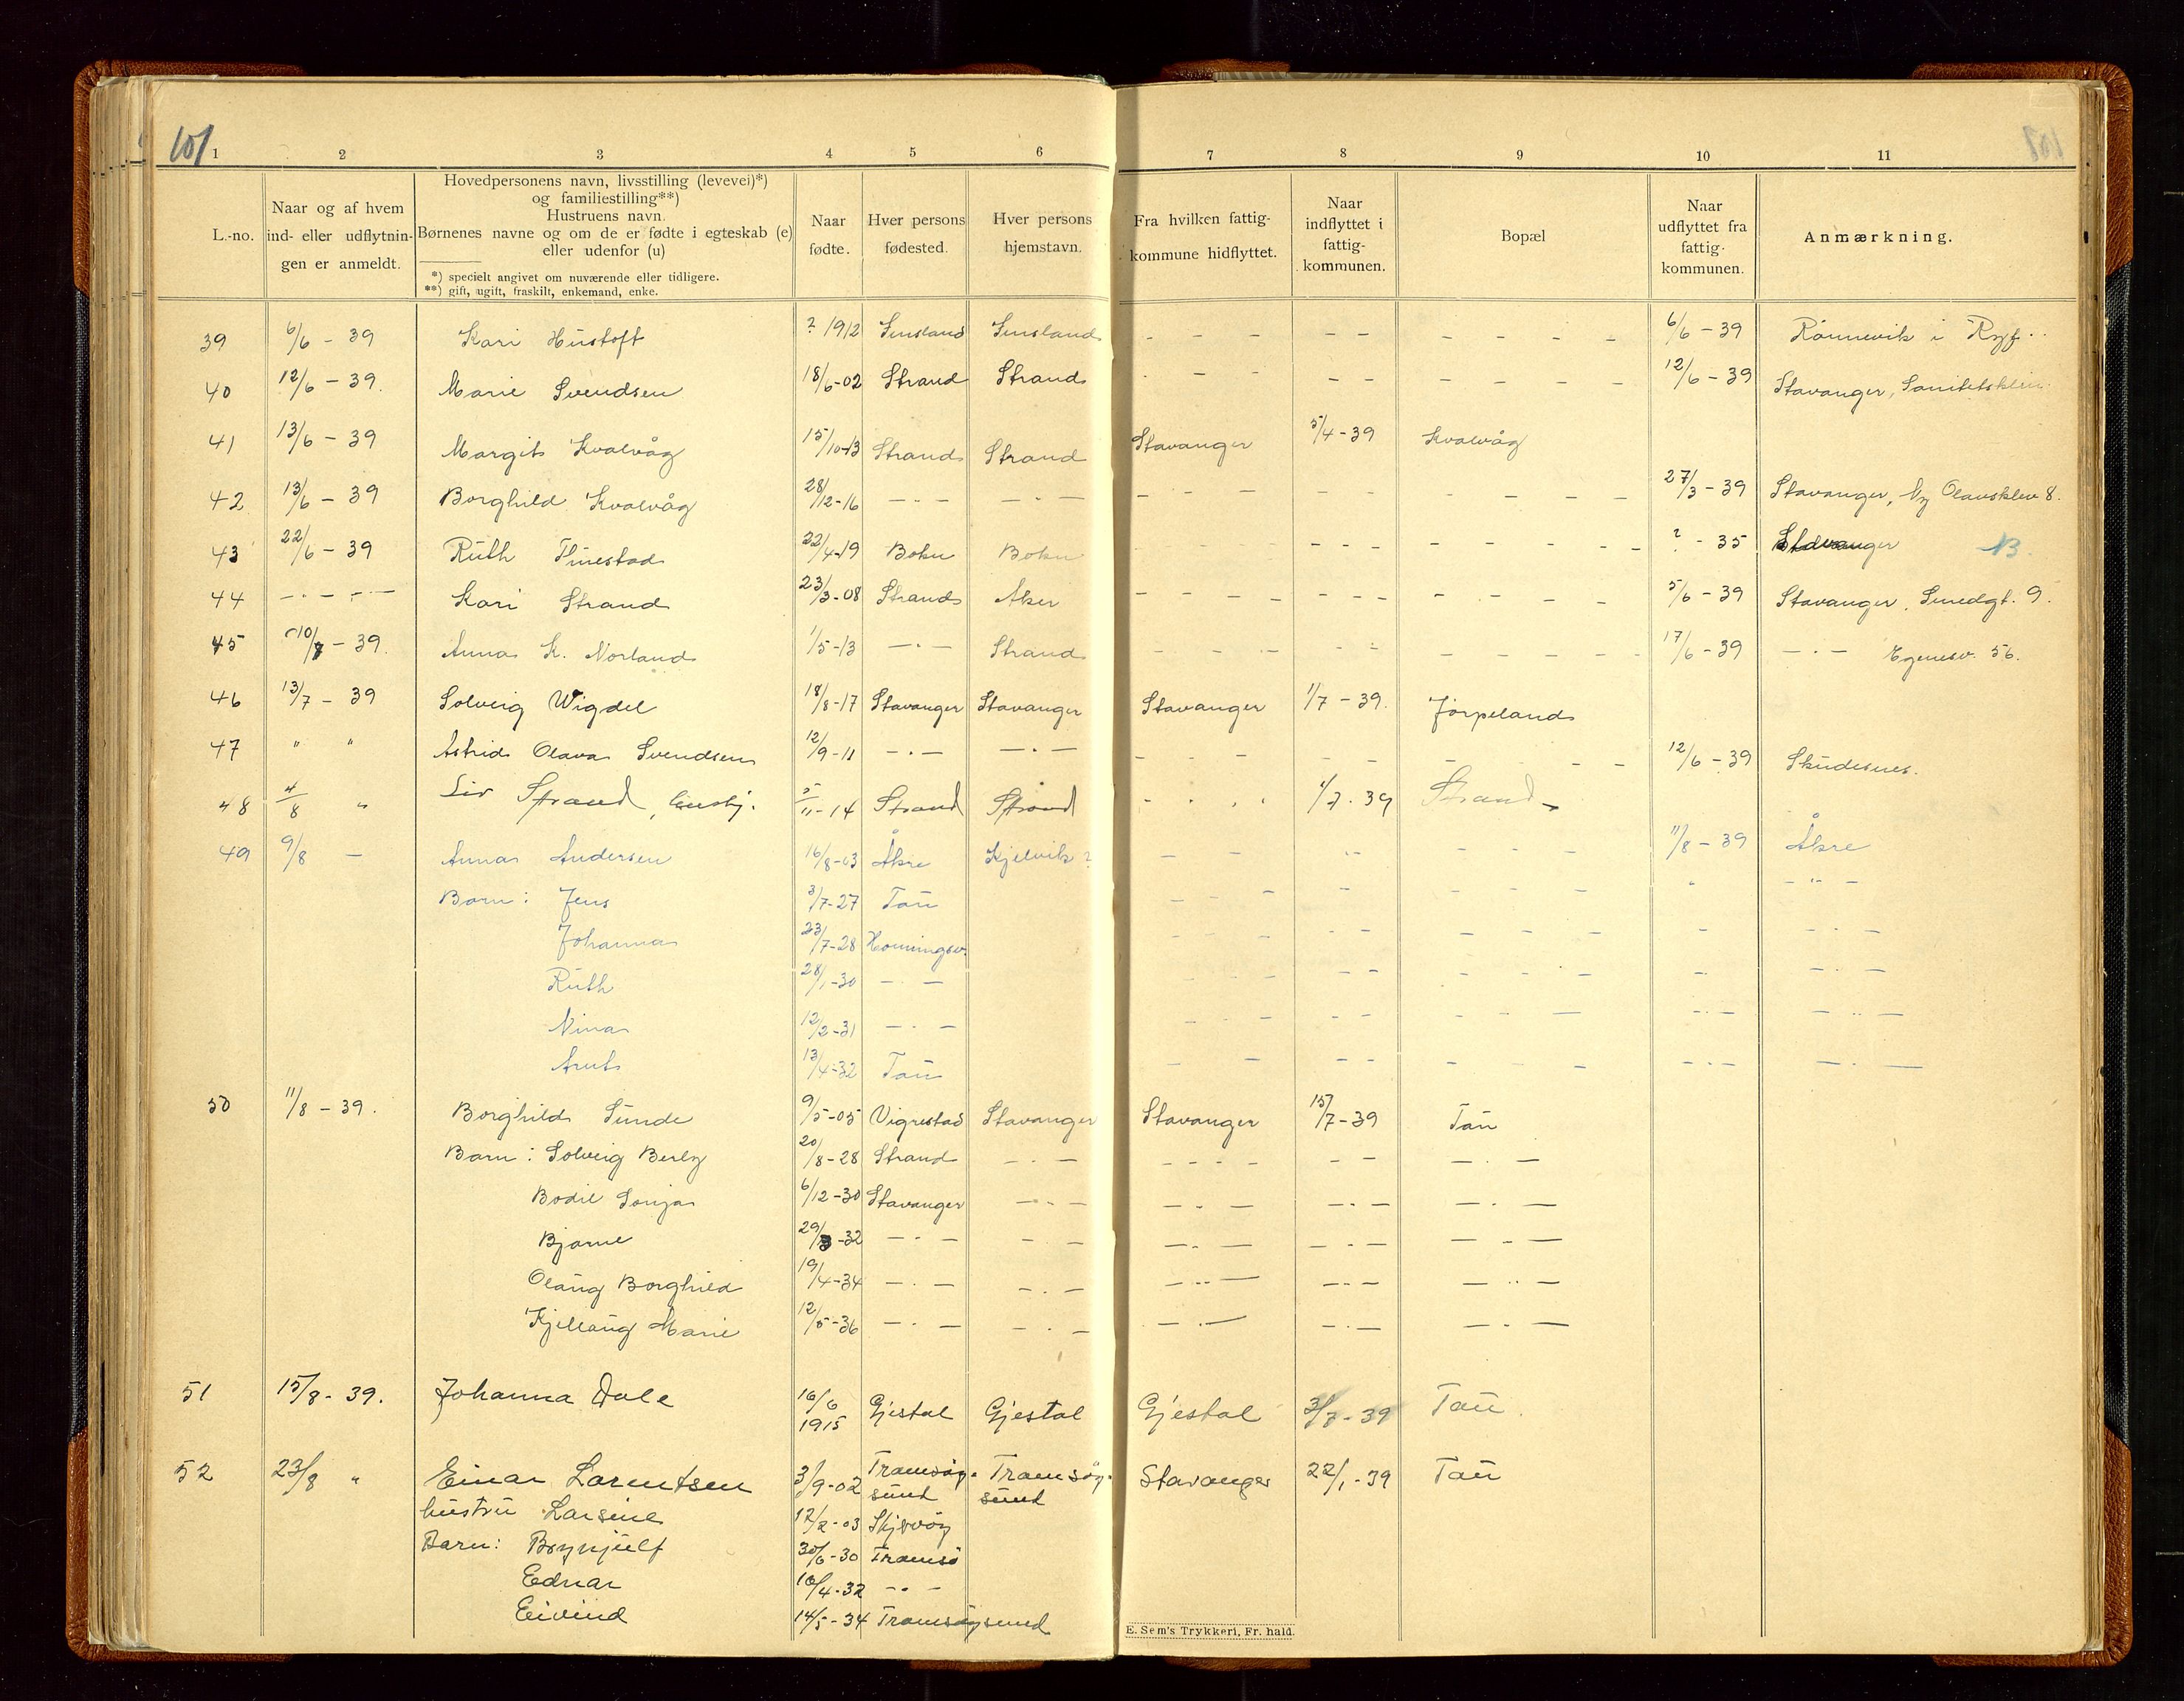 101
1 2 3 4 5 6 7 8 9 10 11
L.-no.
Naar og af hvem
ind- eller udflytnin-
gen er anmeldt.
Hovedpersonens navn, livsstilling (levevei)*)
og familiestilling**)
Hustruens navn.
Børnenes navne og om de er fødte i egteskab (e)
eller udenfor (u)
*) specielt angivet om nuværende eller tidligere.
**) gift, ugift, fraskilt, enkemand, enke.
Naar
fødte.
Hver persons
fødested.
Hver persons
hjemstavn.
Fra hvilken fattig-
kommune hidflyttet.
Naar
indflyttet i
fattig-
kommunen.
Bopæl
Naar
udflyttet fra
fattig-
kommunen.
Anmærkning.
39 6/6 - 39 Kari Hustoft ? 1912 Jensland Jensland - - - - - - - - - 6/6 - 39 Rönnevik i Ryf.
40 12/6 - 39. Marie Svendsen 18/6-02 Strand Strand - - - - - - - - - - 12/6 - 39 Stavanger, Sanitetsklin.
41 13/6 - 39 Margit Kvalvåg 15/10-13 Strand Strand Stavanger 5/4-39 Kvalvåg
42 13/6 - 39 Borghild Kvalvåg 28/12-16 - " - - " - - - - - - - - - - - 27/3 - 39 Stavanger, Ny Olavsklev 8.
43 22/6 - 39 Ruth Tinestad 22/4-19 Bokn Bokn - - - - - - - - - - ? - 35 Stavanger B.
44 - " - " - Kari Strand 23/3-08 Strand Aker - - - - - - - - - - - 5/6 - 39 Stavanger, Smedgt. 9.
45 10/7 - 39. Anna K. Norland 1/5-13 - " - Strand - - - - - - - - - - 17/6 - 39 - " - Egenesv. 56.
46 13/7 - 39 Solveig Wigdel 18/8-17 Stavanger Stavanger Stavanger 1/7 - 39. Jörpeland
47 " " Astrid Olava Svendsen 12/9-11 - " - - " - - - - - - - - - - 12/6 - 39 Skudesnes.
48 4/8 " Liv Strand, 5/11-14 Strand Strand - " " " 1/7. 39 Strand
49 9/8 - Anna Andersen 16/8-03 Åkre Kjelvik ? - - - - - - - 11/8 - 39 Åkre
Barn: Jens 3/7-27 Tau - - - - - - - " - " -
Johanna 23/7-28 Honningsv. - - - - - - - - - " -
Ruth 28/1-30 - " - - - - - - - - - - " -
Nina 12/2-31 - " - - - - - - - - - " - - " -
Arnt 13/4-32 Tau - - - - - - - - " - - " -
50 11/8 - 39. Borghild Sunde 9/5-05 Vigrestad Stavanger Stavanger 15/7-39 Tau
Barn: Solveig Berly 20/8-28 Strand - " - - - - - - - - " -
Bodil Sonja 6/12-30 Stavanger - " - - " - - " - - " -
Bjarne 29/3-32 - " - - - - " - - " - - " -
Olaug Borghild 19/4-34 - " - - " - - " - - " - - " -
Kjellaug Marie 12/5-36 - " - - " - - " - - " - - " -
51 15/8 - 39. Johanna Dale 16/6 1915 Gjestal Gjestal Gjestal 3/7 - 39 Tau.
52 23/8 " Einar Lorentsen 3/9-02 Tromsøy-sund Tromsøy-sund Stavanger 22/1-39 Tau
hustru Larsine 12/2-03 Skjervøy
Barn: Brynjulf 30/6-30 Tromsö
Ednar 10/4-32 - " -
Eivind 14/5-34 Tromsøysund
E. Sem's Trykkeri, Fr. hald.